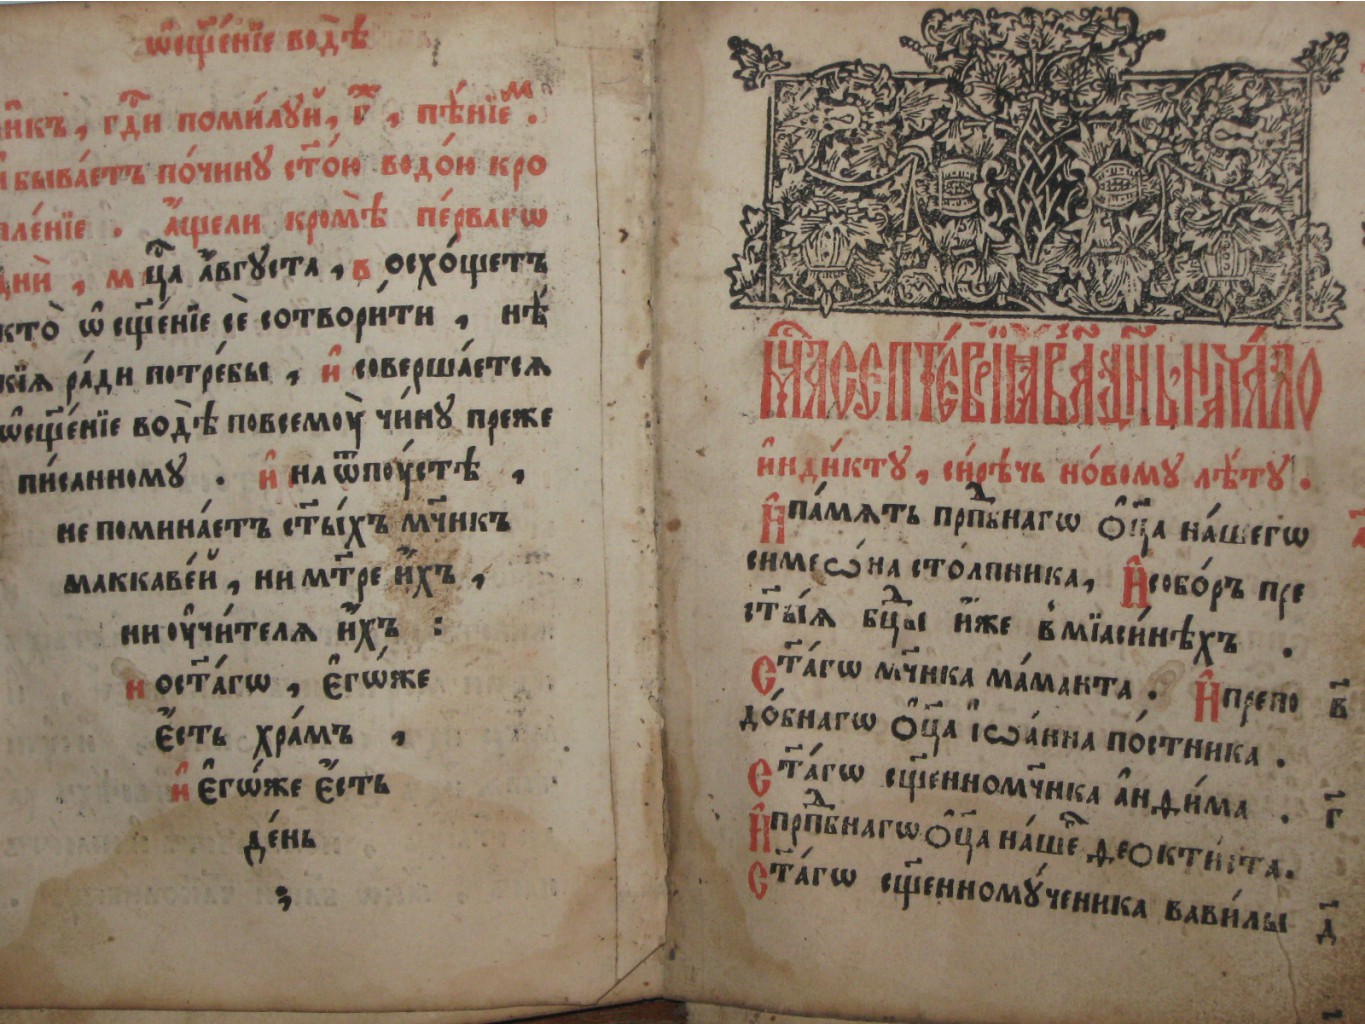 ѡ҆сщ҃е́нїе водѣ̀
нїкъ, гдⷭ҇и поми́лꙋй, г҃ⷤ, пѣ́нїеⷨ.
и҆ быва́етъ по чи́нꙋ ст҃о́ю водо́ю кро
пле́нїе. а҆́ще ли кромѣ̀ пе́рвагѡ
дни̇̀, мцⷭ҇а а҆́вгꙋста, восхо́щетъ
кто̀ ѡ҆сщ҃е́нїе сѐ сотвори́ти, нѣ́
кїѧ ра́ди потре́бы, и҆ соверша́етсѧ
ѡ҆сщ҃е́нїе водѣ̀ по всемꙋ̀ чи́нꙋ преже
пи́санномꙋ. и҆ на ѿпꙋ́стѣ,
не помина́етъ ст҃ы́хъ мч҃никъ
маккаве́й, ни мт҃ре и҆́хъ,
ни ᲂу҆чи́телѧ и҆́хъ :
и ᲂст҃а́гѡ, є҆гѡ́же
є҆́сть хра́мъ,
и҆ є҆гѡ́же є҆́сть
де́нь
,
мцⷭ҇а септе́врїѧ в а҃ де́нь нача́ло
и҆нди́ктꙋ, си́рѣчь но́вомꙋ лѣ́тꙋ.
И҆ па́мѧть прпⷣбнагѡ ѻ҆ц҃а на́шегѡ
симеѡ́на сто́лпника, И҆ собо́ръ пре
ст҃ы́ѧ бцⷣы и҆́же в мїаси́нѣхъ.
Ст҃а́гѡ мч҃ника ма́манта. И҆ препо в҃
до́бнагѡ ѻ҆ц҃а і҆ѡа́нна по́стника.
Ст҃а́гѡ сщ҃енномч҃ника а҆нѳи́ма. г҃
И҆ прпⷣбнагѡ ѻ҆ц҃а на́шеⷢ ѳеокти́ста.
Ст҃а́гѡ сщ҃енномꙋ́ченика вави́лы д҃